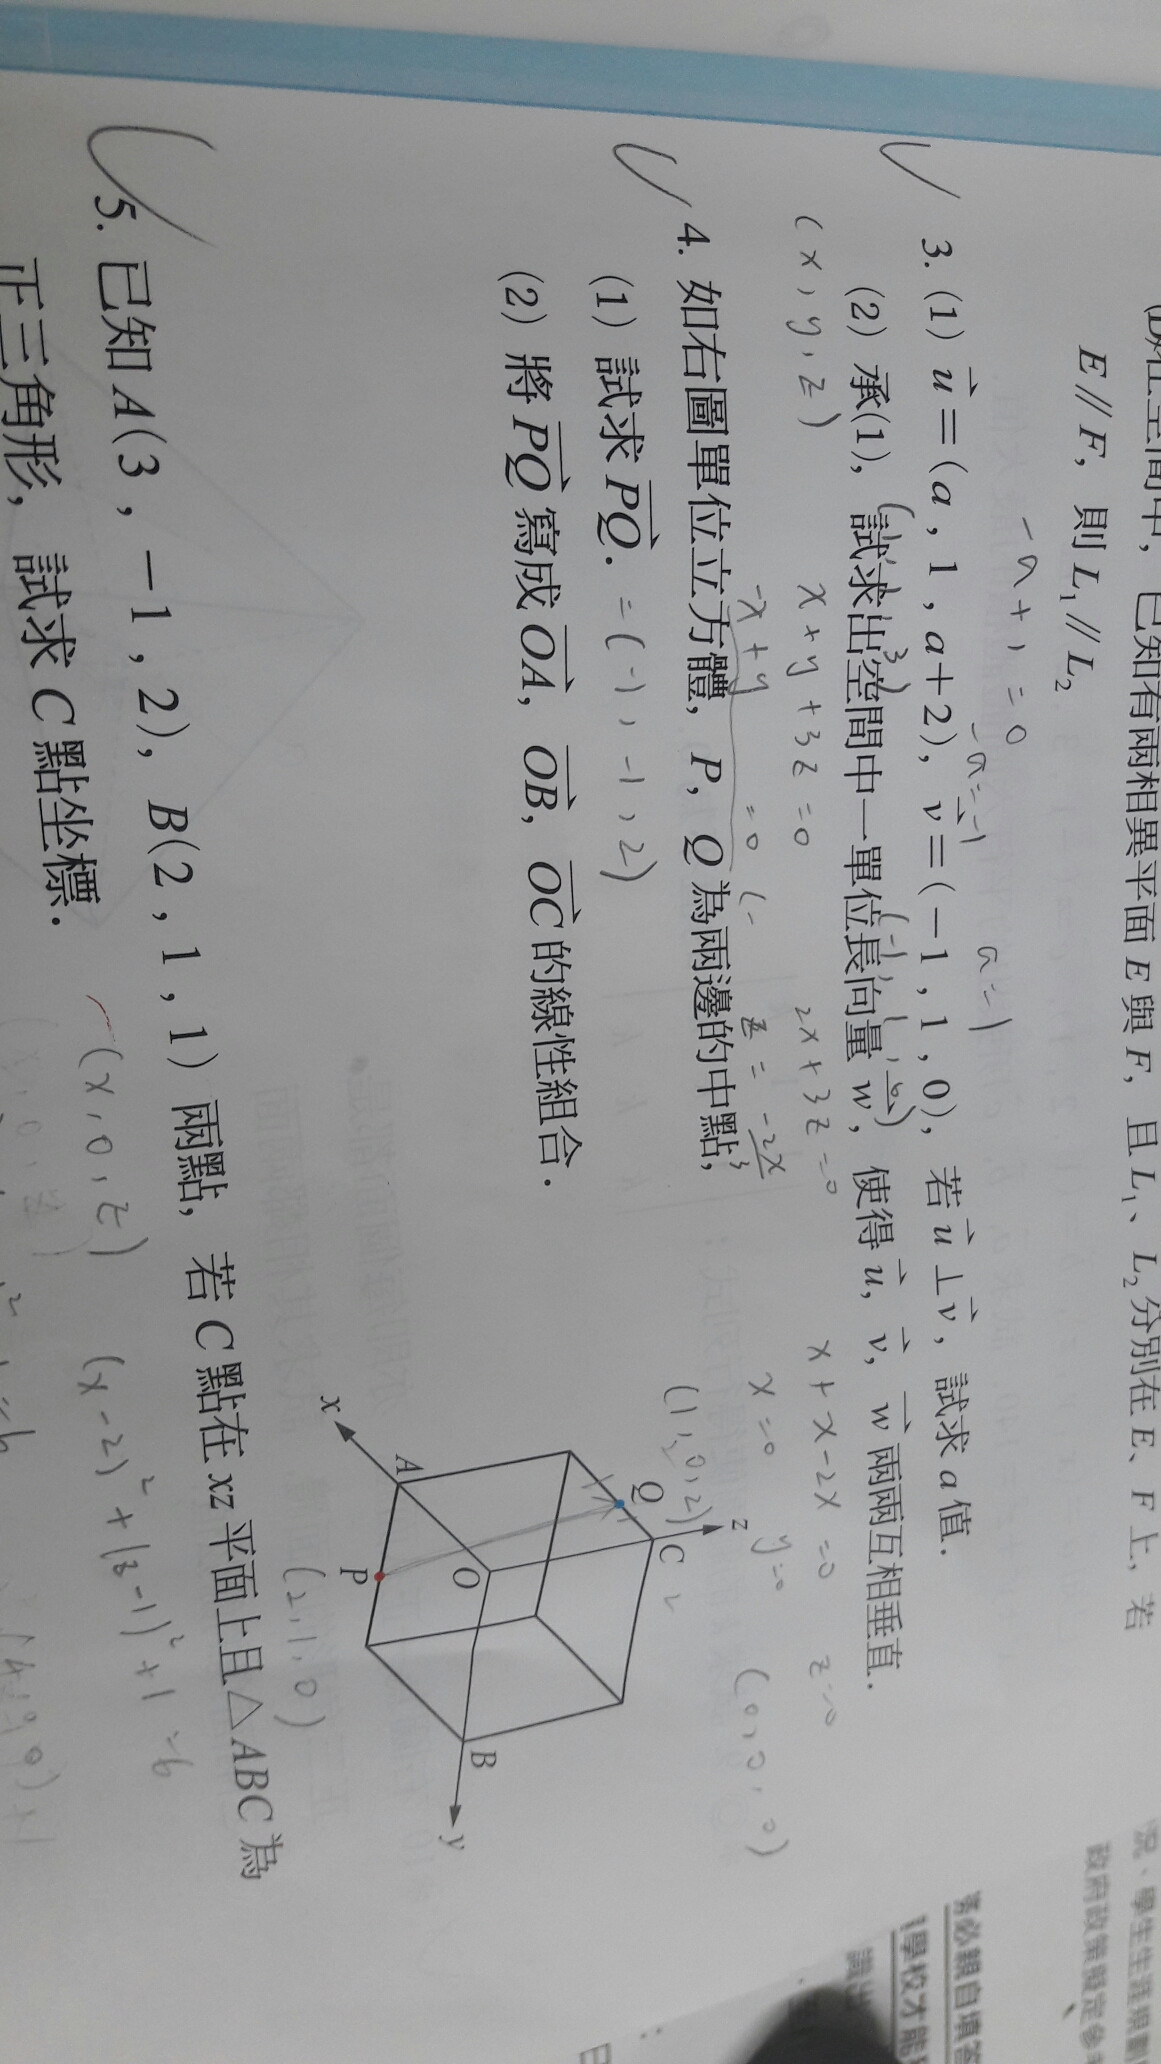 在空間中，已知有兩相異平面 E 與 F，且 L₁、L₂ 分別在 E、F 上，若
E // F，則 L₁ // L₂
-a+1=0 -a=-1 a=1
3. (1) u=(a，1，a+2)，v=(-1，1，0)，若 u⊥v，試求 a 值．
(1, 1, 3) (-1, 1, 0)
(2) 承(1)，試求出空間中一單位長向量 w，使得 u，v，w 兩兩互相垂直．
(x, y, z) x+y+3z=0 2x+3z=0 x+x-2x=0 z=0
-x+y =0 z=-2x/3 x=0 y=0 (0, 0, 0)
4. 如右圖單位立方體，P，Q 為兩邊的中點，
(1) 試求 PQ．=(-1, -1, 2)
(2) 將 PQ 寫成 OA，OB，OC 的線性組合．
(1, 0, 2)
z
Q
C
2
A
O
x
P
B
y
(2, 1, 0)
5. 已知 A(3，-1，2)，B(2，1，1) 兩點，若 C 點在 xz 平面上且△ABC 為
正三角形，試求 C 點坐標．
(x, 0, z) (x-2)²+(z-1)²+1=6
況．學生生涯規劃
政府政策擬定參
必親自填答
學校才能